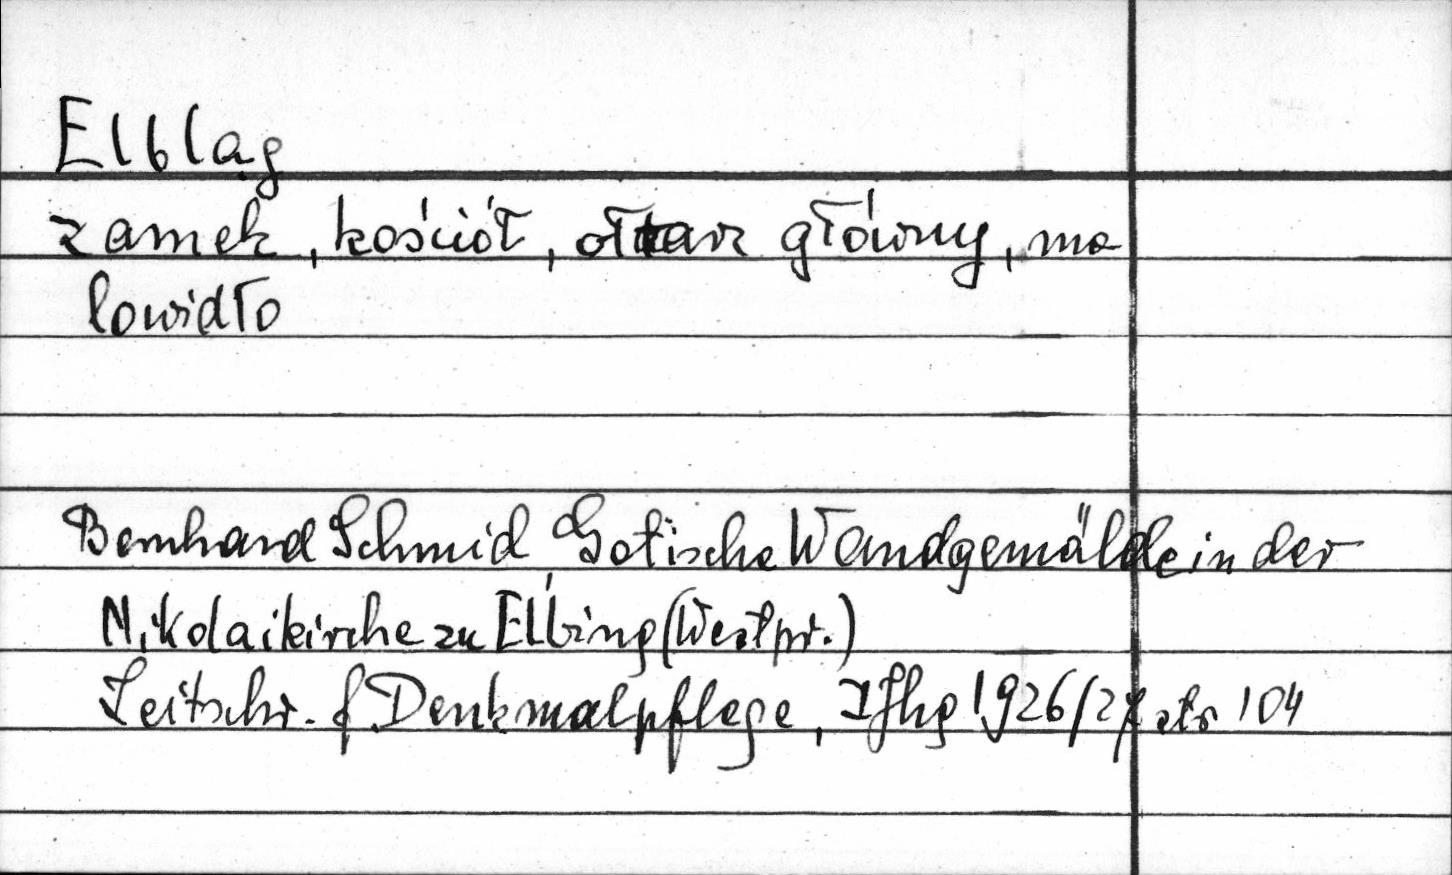 Elbląg
zamek, kościół, ołtarz główny, ma
lowidło
Bernhard Schmid, Gotische Wandgemälde in der
Nikolaikirche zu Elbing (Westpr.)
Zeitschr. f Denkmalpflege, I Jhg 1926/27 str 104